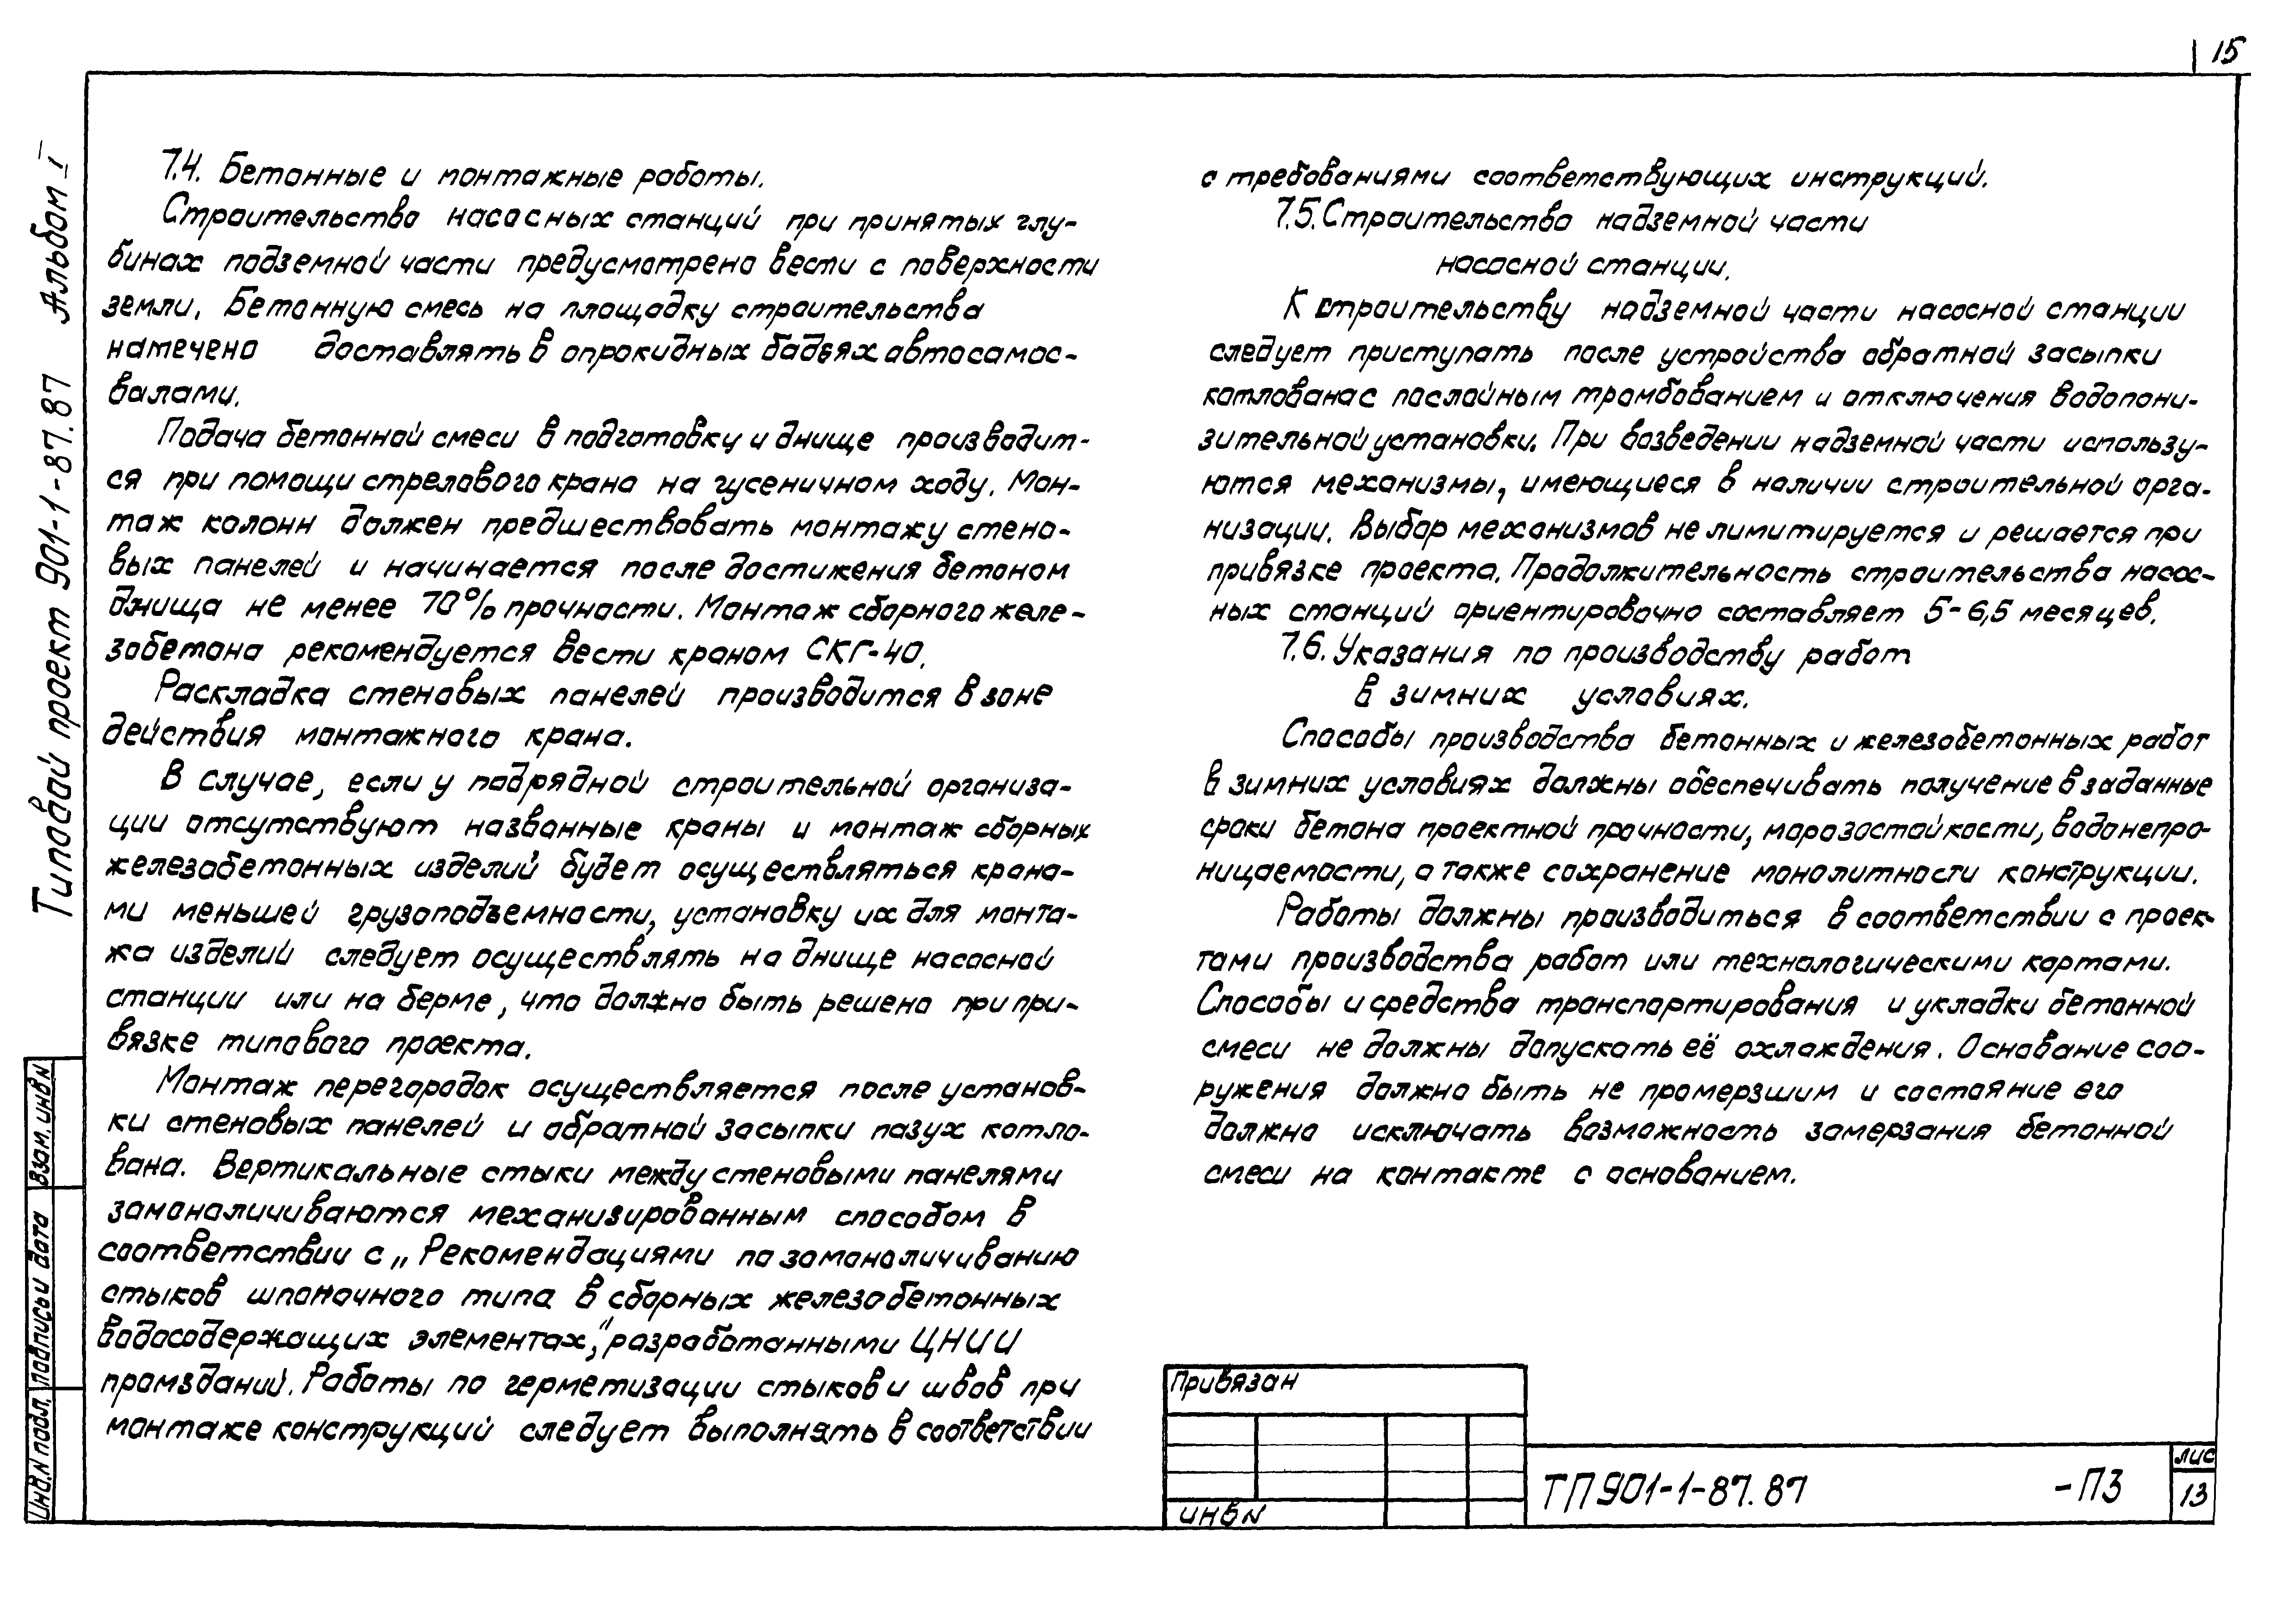 15
Типовой проект 901-1-87.87 Альбом I
7.4. Бетонные и монтажные работы.
Строительство насосных станций при принятых глу-
бинах подземной части предусмотрено вести с поверхности
земли. Бетонную смесь на площадку строительства
намечено доставлять в опрокидных бадьях автосамос-
валами.
Подача бетонной смеси в подготовку и днище производит-
ся при помощи стрелового крана на гусеничном ходу. Мон-
таж колонн должен предшествовать монтажу стено-
вых панелей и начинается после достижения бетоном
днища не менее 70% прочности. Монтаж сборного желе-
зобетона рекомендуется вести краном СКГ-40.
Раскладка стеновых панелей производится в зоне
действия монтажного крана.
В случае, если у подрядной строительной организа-
ции отсутствуют названные краны и монтаж сборных
железобетонных изделий будет осуществляться крана-
ми меньшей грузоподъемности, установку их для монта-
жа изделий следует осуществлять на днище насосной
станции или на берме, что должно быть решено при при-
вязке типового проекта.
Монтаж перегородок осуществляется после установ-
ки стеновых панелей и обратной засыпки пазух котло-
вана. Вертикальные стыки между стеновыми панелями
замоноличиваются механизированным способом в
соответствии с „Рекомендациями по замоноличиванию
стыков шпоночного типа в сборных железобетонных
водосодержащих элементах", разработанными ЦНИИ
промзданий. Работы по герметизации стыков и швов при
монтаже конструкций следует выполнять в соответствии
с требованиями соответствующих инструкций.
7.5. Строительство надземной части
насосной станции.
К строительству надземной части насосной станции
следует приступать после устройства обратной засыпки
котлована с послойным трамбованием и отключения водопони-
зительной установки. При возведении надземной части использу-
ются механизмы, имеющиеся в наличии строительной орга-
низации. Выбор механизмов не лимитируется и решается при
привязке проекта. Продолжительность строительства насос-
ных станций ориентировочно составляет 5-6,5 месяцев.
7.6. Указания по производству работ
в зимних условиях.
Способы производства бетонных и железобетонных работ
в зимних условиях должны обеспечивать получение в заданные
сроки бетона проектной прочности, морозостойкости, водонепро-
ницаемости, а также сохранение монолитности конструкции.
Работы должны производиться в соответствии с проек-
тами производства работ или технологическими картами.
Способы и средства транспортирования и укладки бетонной
смеси не должны допускать её охлаждения. Основание соо-
ружения должно быть не промерзшим и состояние его
должно исключать возможность замерзания бетонной
смеси на контакте с основанием.
Привязан
ИНВ N
ТП 901-1-87.87 -ПЗ
лис
13
Инв. N подл.
Подпись и дата
Взам. инв N